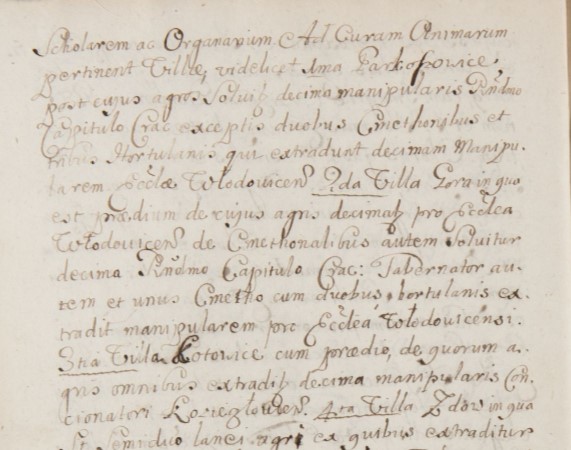 Scholarem ac Organarium Ad Curam Animarum
pertinent Villæ, videlicet 1ma Parkoszowice,
post cujus agros Solvitꝫ decima manipularis Rndmo
Capitulo Crac exceptis duobus Cmethonibus et
tribus Hortulanis qui extradunt decimam Manipu-
larem Ecclæ Włodovicens. 2da Villa Gora in quo
est prædium de cujus agris decimatꝫ pro Ecclea
Włodovicens de Cmethonalibus autem Solvitur
decima Rndmo Capitulo Crac: Tabernator au-
tem et unus Cmetho cum duobus hortulanis ex-
tradit manipularem pro Ecclea Włodovicensi.
3tia Villa Kotowice cum prædio, de quorum a-
gris omnibus extraditꝫ decima manipularis Con-
cionatori Kozieglovien. 4ta Villa Zdow in qua
st Semiduo lanei agri ex quibus extraditur